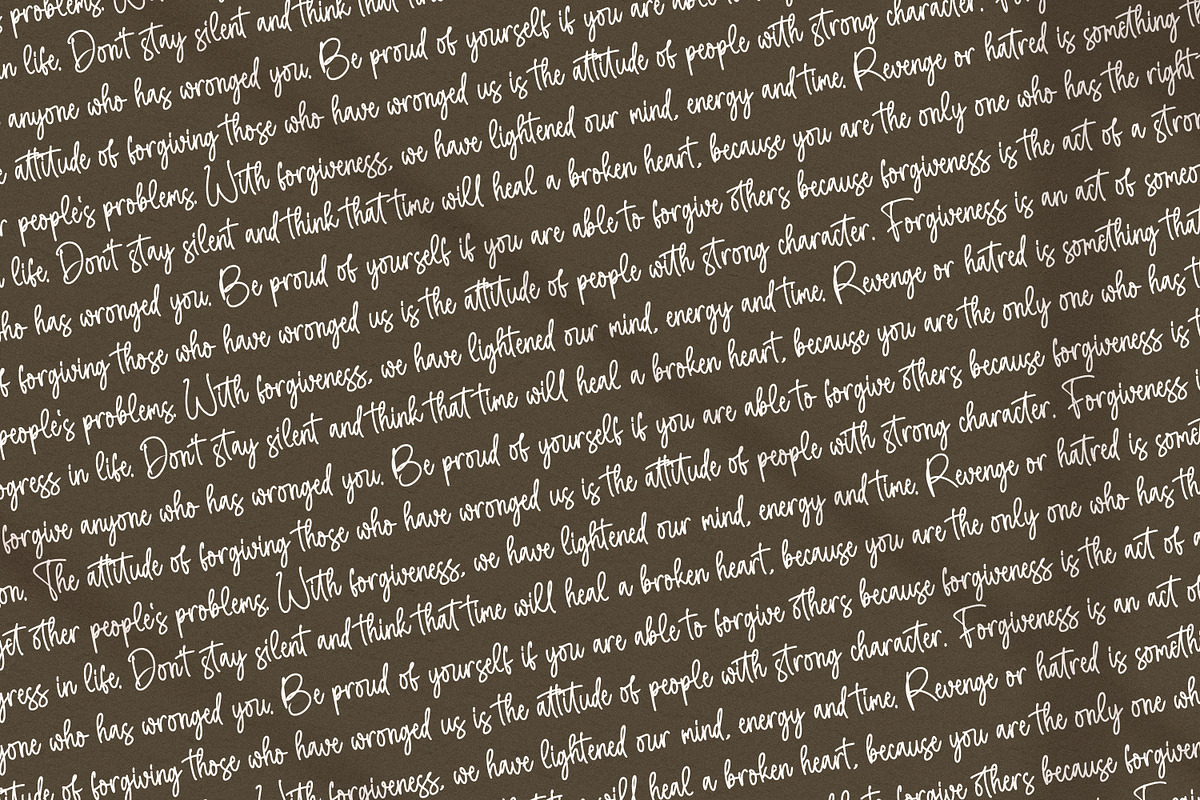 problems.
n life. Don't stay silent and think that
anyone who has wronged you. Be proud of yourself if you are able
attitude of forgiving those who have wronged us is the attitude of people with strong character.
r people's problems. With forgiveness, we have lightened our mind, energy and time. Revenge or hatred is something
life. Don't stay silent and think that time will heal a broken heart, because you are the only one who has the right
who has wronged you. Be proud of yourself if you are able to forgive others because forgiveness is the act of a stron
f forgiving those who have wronged us is the attitude of people with strong character. Forgiveness is an act of someo
people's problems. With forgiveness, we have lightened our mind, energy and time. Revenge or hatred is something that
ogress in life. Don't stay silent and think that time will heal a broken heart, because you are the only one who has t
forgive anyone who has wronged you. Be proud of yourself if you are able to forgive others because forgiveness is t
on. The attitude of forgiving those who have wronged us is the attitude of people with strong character. Forgiveness i
get other people's problems. With forgiveness, we have lightened our mind, energy and time. Revenge or hatred is some
gress in life. Don't stay silent and think that time will heal a broken heart, because you are the only one who has th
yone who has wronged you. Be proud of yourself if you are able to forgive others because forgiveness is the act of a
titude of forgiving those who have wronged us is the attitude of people with strong character. Forgiveness is an act o
With forgiveness, we have lightened our mind, energy and time. Revenge or hatred is someth
will heal a broken heart, because you are the only one wh
forgive others because forgiven